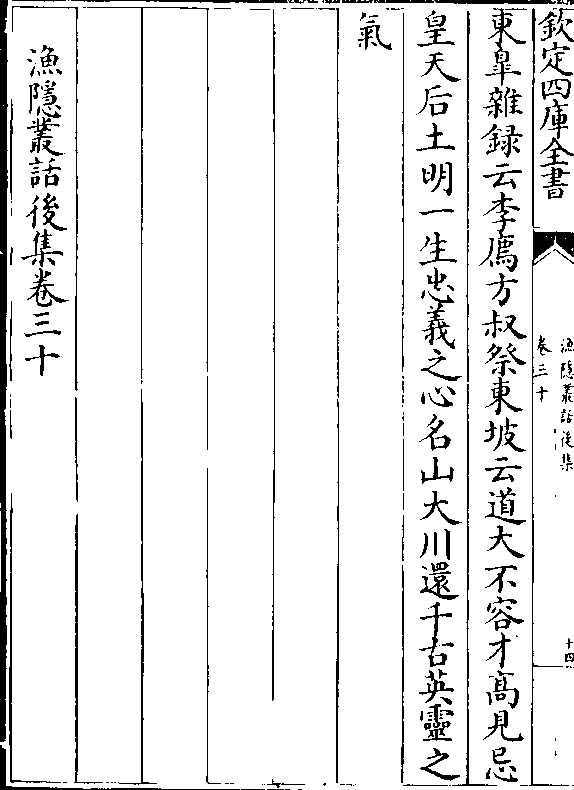 欽定四庫全書
漁隱叢話後集
卷三十
十四
東皐雜録云李廌方叔祭東坡云道大不容才髙見忌
皇天后土明一生忠義之心名山大川還千古英靈之
氣
漁隱叢話後集卷三十